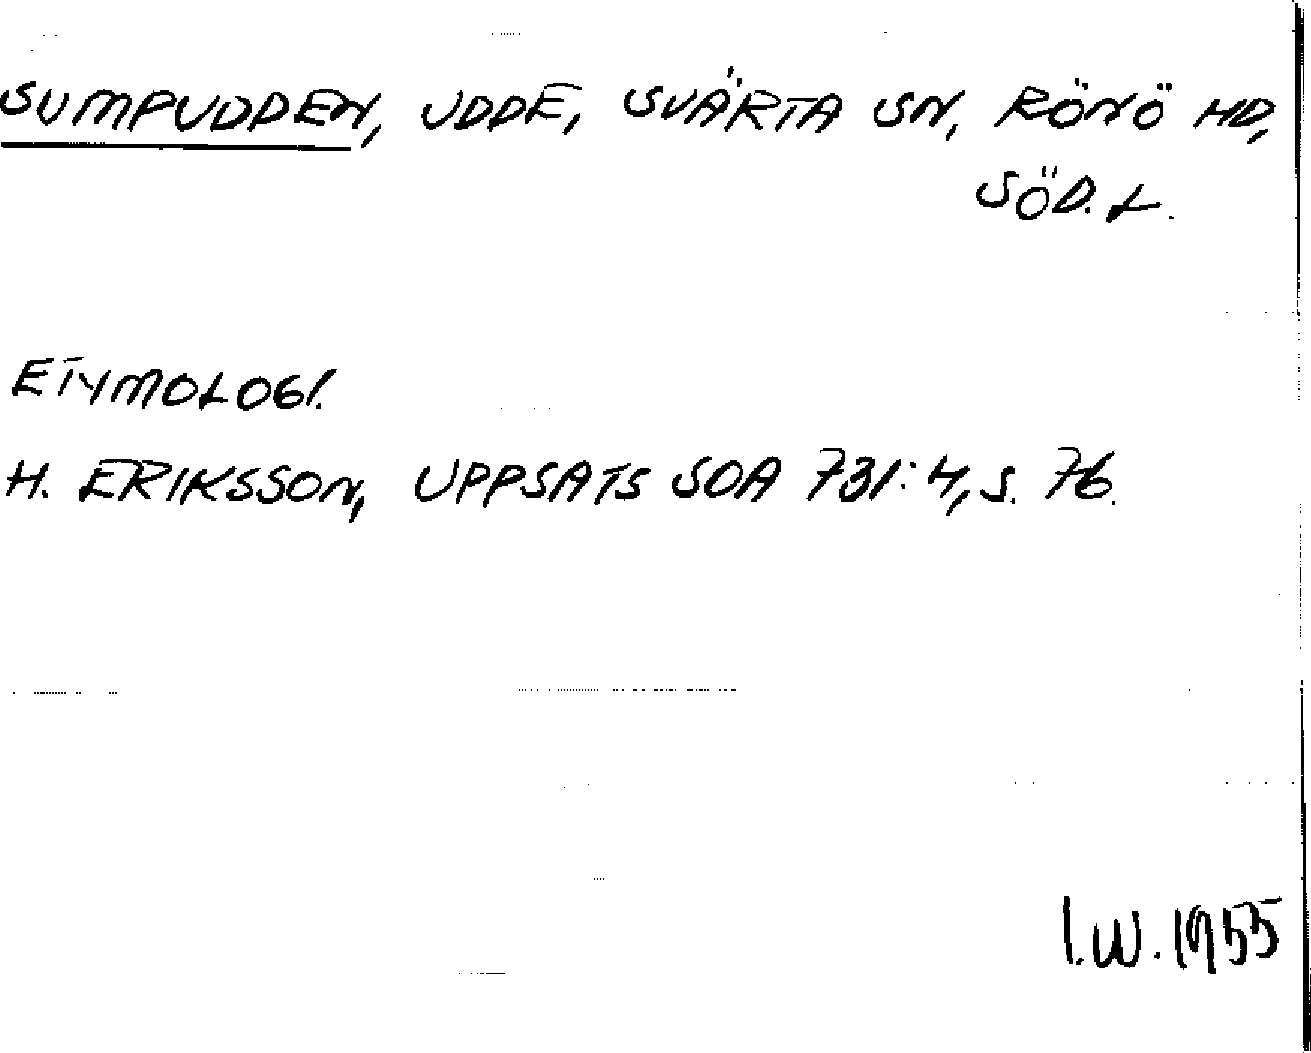 SUMPUDDEN, UDDE, SVÄRTA SN, RÖNÖ HD,
SÖD. L.
ETYMOLOGI.
H. ERIKSSON, UPPSATS SOA 731:4, S. 76.
I.W. 1955